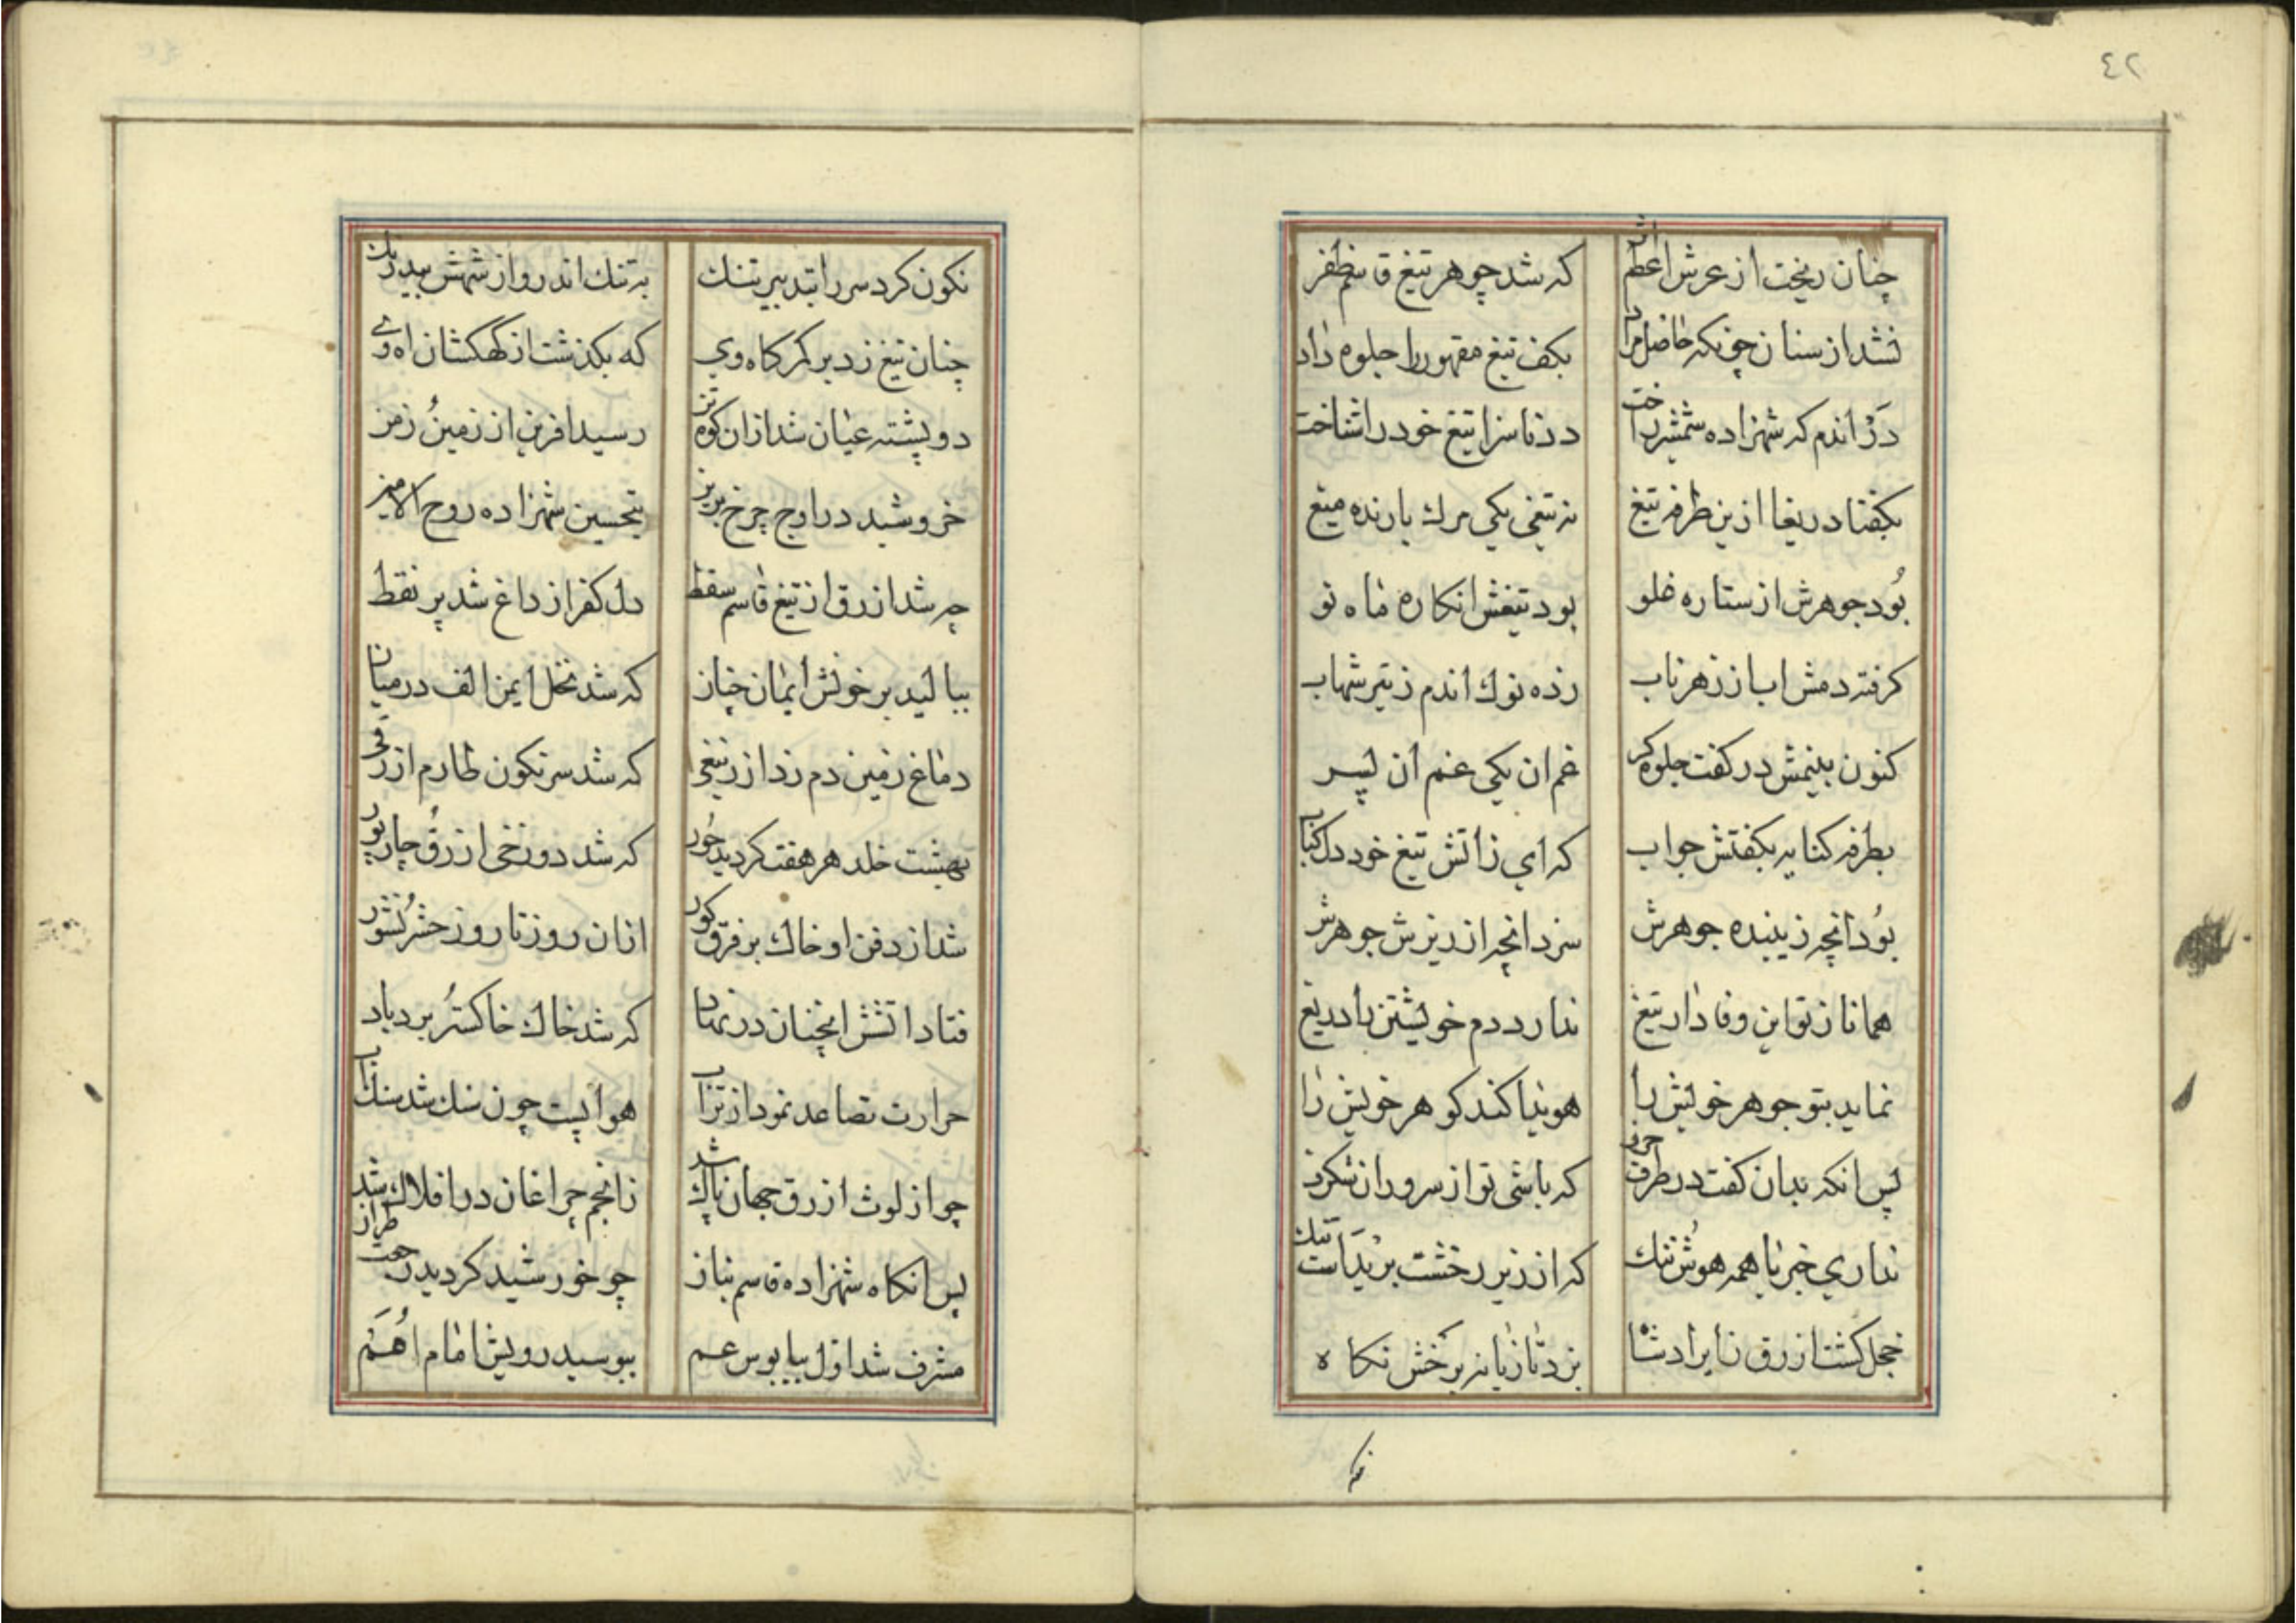 ٤٢
چنان ریخت از عرش اعظم اثر که شد جوهر تیغ قاسم ظفر
نشد از سنان چونکه حاصل مراد بکف تیغ مقهور را جلوه داد
در اندم که شهزاده شمشیر اخت در ناسزا تیغ خود را شناخت
بکفتا دریغا ازین طرفه تیغ نه تیغی یکی مرك بارنده میغ
بُود جوهرش از ستاره غلو بود تیغش انکاره ماه نو
کرفته دمش اب از زهر ناب زده نوك اندم ز تیر شهاب
کنون بینمش در کفت جلوه کر غم ان یکی غم ان پسر
بطرفه کنایه بکفتش جواب که ای زاتش تیغ خود دل کباب
بُود انچه زیبنده جوهرش سزد انچه اندیزش جوهرش
همانا ز تو این وفادار تیغ ندارد دم خویشتن را دریغ
نماید بتو جوهر خویش را هویدا کند کوهر خویش را
پس انکه بدان کفت در طرف حرف که باشی تو از سروران شکرف
نداری خبر با همه هوش تنك که از زیر رخشت بریداست تنك
خجل کشت ازرق ز ایراد شاه بزد تازیانه برخش نکاه
نکون کرد سر را بتدبیر تنك به تنك اندر واز شهش بیدرنك
چنان تیغ زد بر کمرکاه وی که بکذشت از کهکشان اه وی
دو پشته عیان شد ازان کوه تن رسید افرین از زمینُ زمن
خروشید در اوج چرخ برین بتحسین شهزاده روح الامین
چه شد ازرق از تیغ قاسم سقط دل کفر از داغ شد پر نقط
ببالید بر خویش ایمان چنان که شد نخل ایمن الف در میان
دماغ زمین دم زد از زنبقی که شد سرنکون طارم ازرقی
بهشت خلد هر هفت کردید حُور که شد دوزخی ازرقُ چار پور
شد از دفن او خاك بر فرق کور ازان روز تا روز حشرُ نشور
فتاد اتشش انچنان در نهاد که شد خاك خاکسترُ بر دباد
حرارت تصاعد نمود از تراب هوا پست چون سنك شد سنك اب
چو از لوث ازرق جهان پاك شد ز انجم چراغان در افلاك شد
پس انکاه شهزاده قاسم بناز چو خورشید کردید رجعت طراز
مشرف شد اول بپابوس عم ببوسید رویش امام اُمَم